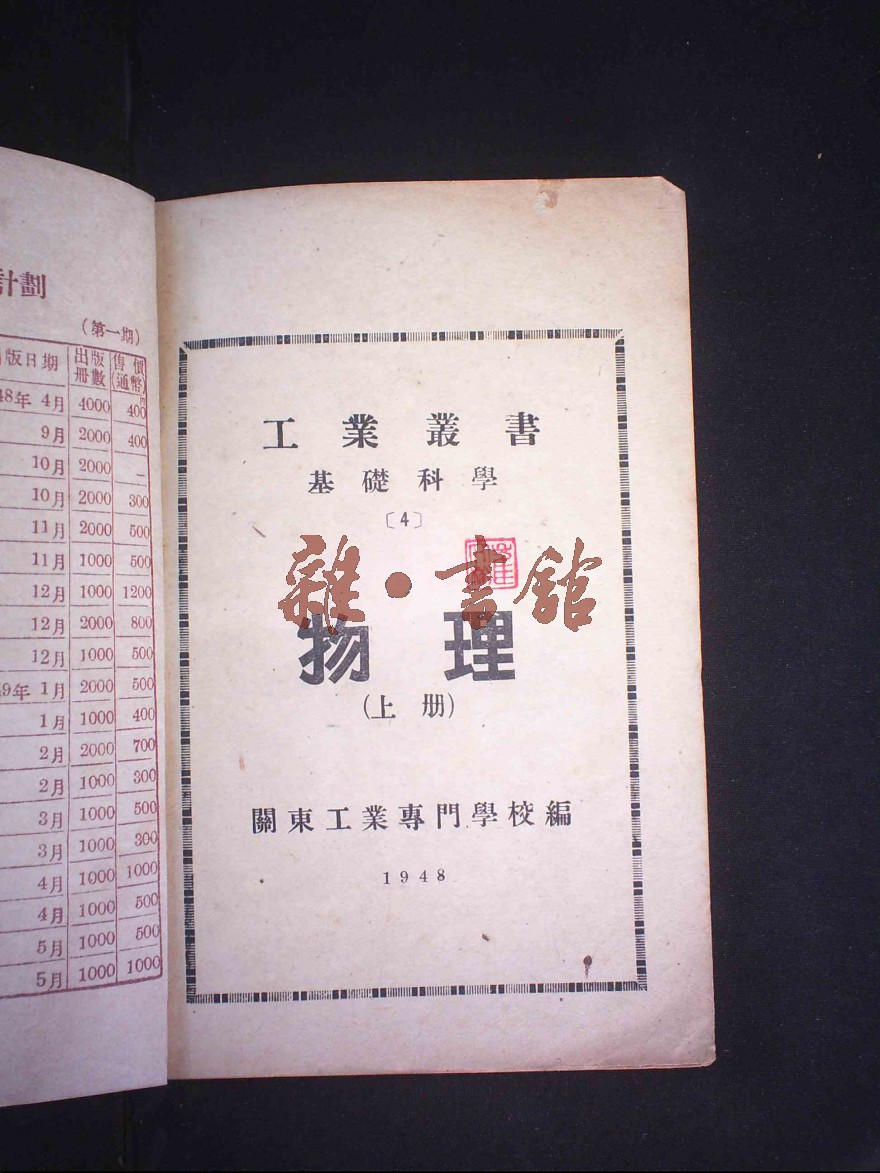 計劃
(第一期)
版日期 出版冊數 售價(通幣)
48年 4月 4000 400
9月 2000 400
10月 2000 —
10月 2000 300
11月 2000 500
11月 1000 500
12月 1000 1200
12月 2000 800
12月 1000 500
9年 1月 2000 500
1月 1000 400
2月 2000 700
2月 1000 300
3月 1000 500
3月 1000 300
4月 1000 1000
4月 1000 500
5月 1000 500
5月 1000 1000
工業叢書
基礎科學
〔4〕
雜·書館
物理
(上册)
關東工業專門學校編
1948